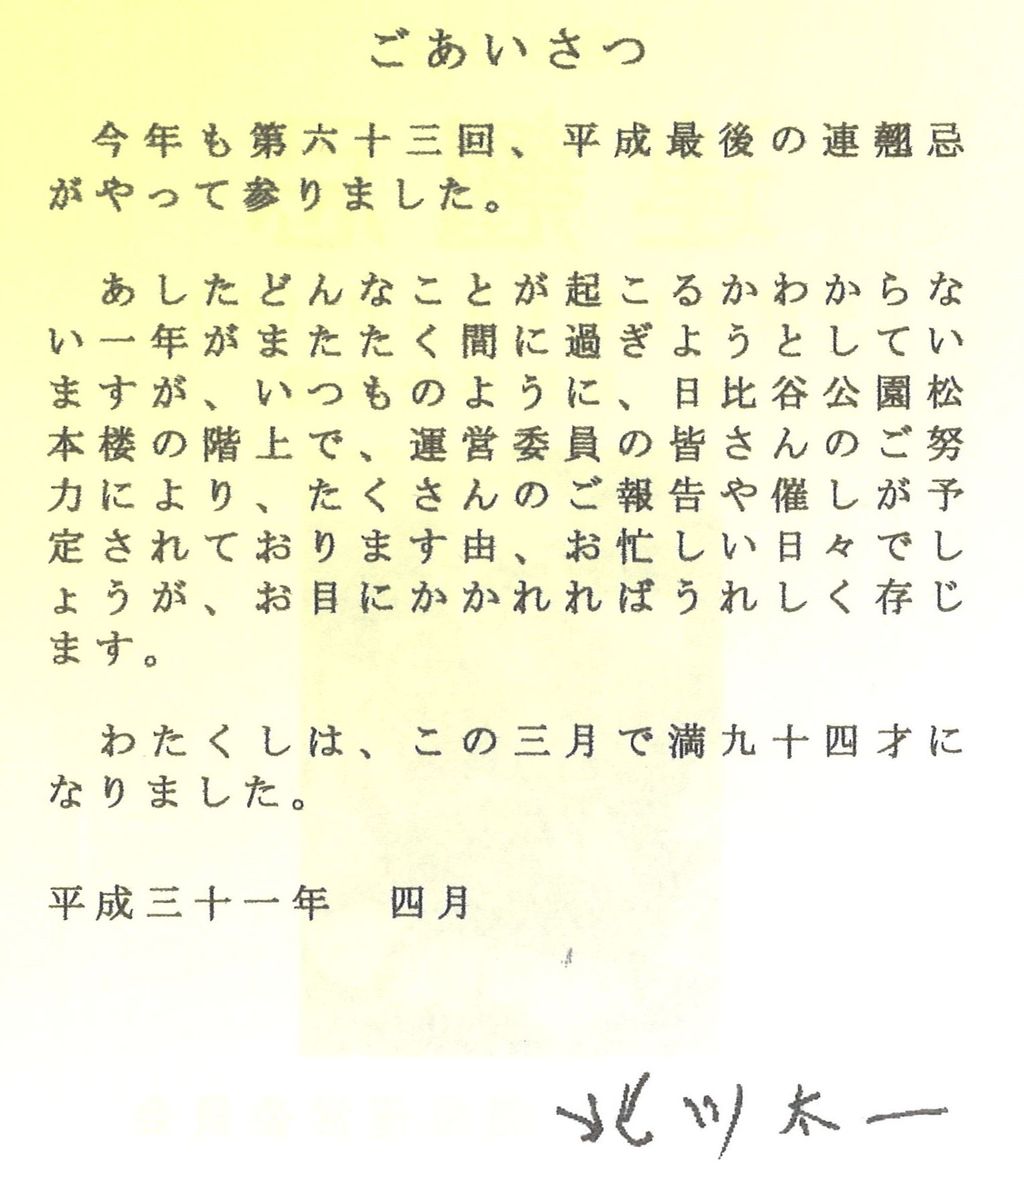 ごあいさつ
今年も第六十三回、平成最後の連翹忌
がやって参りました。
あしたどんなことが起こるかわからな
い一年がまたたく間に過ぎようとしてい
ますが、いつものように、日比谷公園松
本楼の階上で、運営委員の皆さんのご努
力により、たくさんのご報告や催しが予
定されております由、お忙しい日々でし
ょうが、お目にかかれればうれしく存じ
ます。
わたくしは、この三月で満九十四才に
なりました。
平成三十一年　四月
北川太一